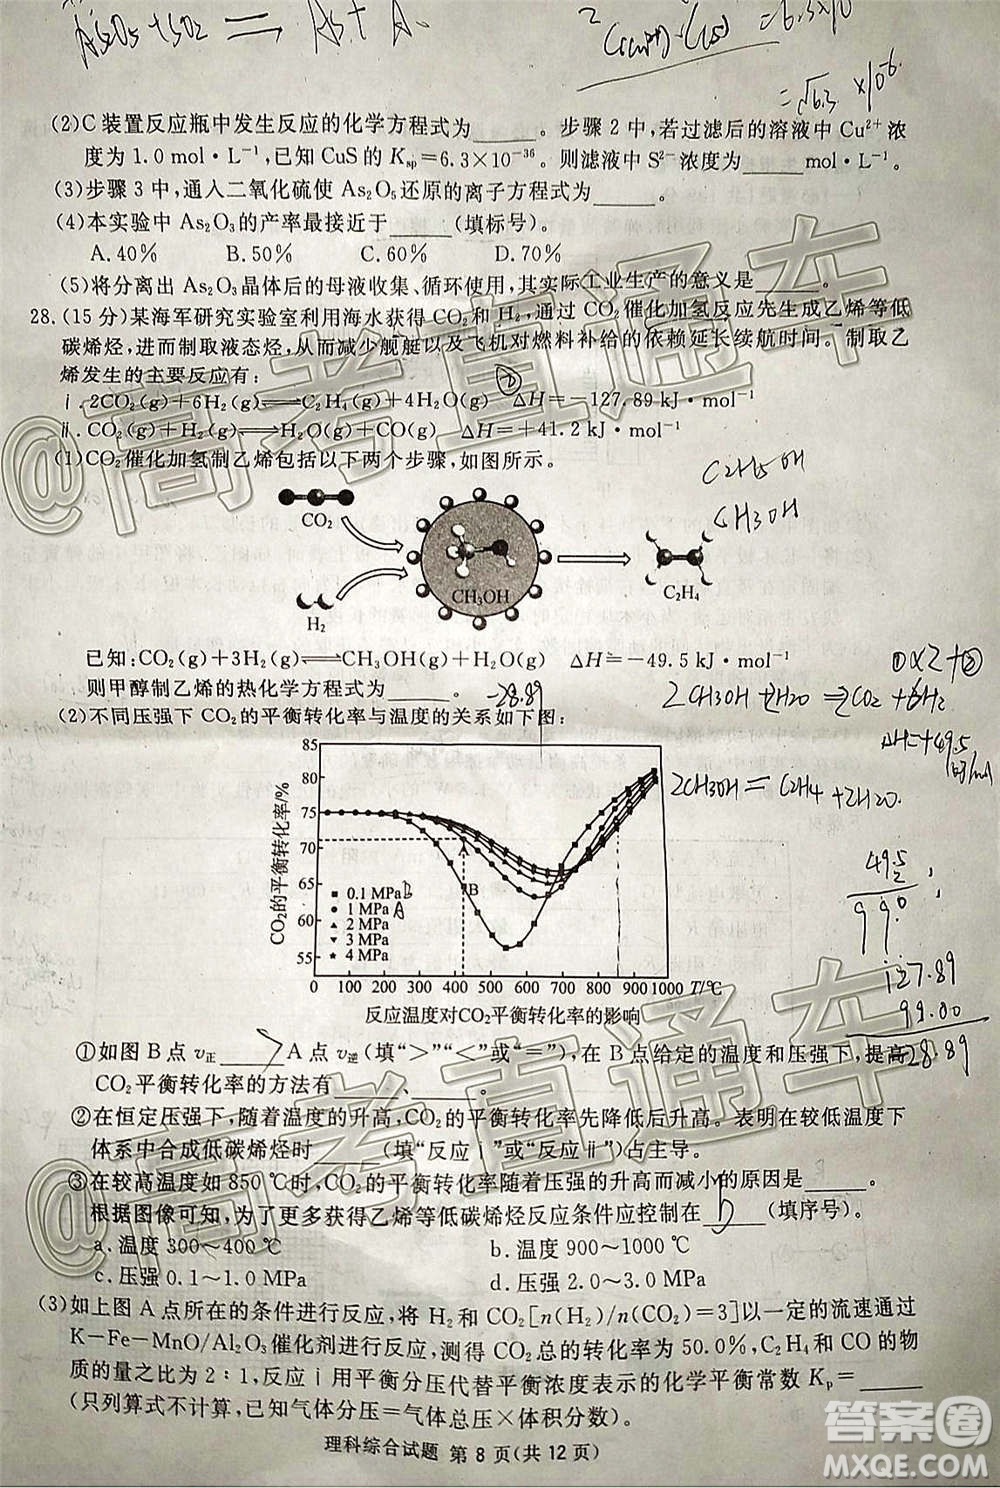 (2)C装置反应瓶中发生反应的化学方程式为______。步骤2中,若过滤后的溶液中Cu²⁺浓
度为1.0 mol·L⁻¹,已知CuS的Kₛₚ=6.3×10⁻³⁶。则滤液中S²⁻浓度为______mol/L。
(3)步骤3中,通入二氧化硫使As₂O₅还原的离子方程式为______。
(4)本实验中As₂O₃的产率最接近于______(填标号)。
A.40% B.50% C.60% D.70%
(5)将分离出As₂O₃晶体后的母液收集、循环使用,其实际工业生产的意义是______。
28.(15分)某海军研究实验室利用海水获得CO₂和H₂,通过CO₂催化加氢反应先生成乙烯等低
碳烯烃,进而制取液态烃,从而减少舰艇以及飞机对燃料补给的依赖延长续航时间。制取乙
烯发生的主要反应有:
ⅰ.2CO₂(g)+6H₂(g)⇌C₂H₄(g)+4H₂O(g) ΔH=-127.89 kJ·mol⁻¹
ⅱ.CO₂(g)+H₂(g)⇌H₂O(g)+CO(g) ΔH=+41.2 kJ·mol⁻¹
(1)CO₂催化加氢制乙烯包括以下两个步骤,如图所示。
C2H5OH
CH3OH
CO₂
CH₃OH
C₂H₄
H₂
已知:CO₂(g)+3H₂(g)⇌CH₃OH(g)+H₂O(g) ΔH=-49.5 kJ·mol⁻¹
则甲醇制乙烯的热化学方程式为______。
-28.89
(2)不同压强下CO₂的平衡转化率与温度的关系如下图:
2CH3OH = C2H4 + 2H2O
CO₂的平衡转化率/%
85
80
75
70
65
60
55
A
B
0.1 MPa
1 MPa
2 MPa
3 MPa
4 MPa
0 100 200 300 400 500 600 700 800 900 1000 T/℃
反应温度对CO₂平衡转化率的影响
49.5
2
99.0
127.89
99.00
28.89
①如图B点v正______A点v逆(填“>”“<”或“=”),在B点给定的温度和压强下,提高
CO₂平衡转化率的方法有______、______。
②在恒定压强下,随着温度的升高,CO₂的平衡转化率先降低后升高。表明在较低温度下
体系中合成低碳烯烃时______(填“反应ⅰ”或“反应ⅱ”)占主导。
③在较高温度如850℃时,CO₂的平衡转化率随着压强的升高而减小的原因是______。
根据图像可知,为了更多获得乙烯等低碳烯烃反应条件应控制在__b__(填序号)。
a.温度300~400℃ b.温度900~1000℃
c.压强0.1~1.0 MPa d.压强2.0~3.0 MPa
(3)如上图A点所在的条件进行反应,将H₂和CO₂[n(H₂)/n(CO₂)=3]以一定的流速通过
K-Fe-MnO/Al₂O₃催化剂进行反应,测得CO₂总的转化率为50.0%,C₂H₄和CO的物
质的量之比为2:1,反应ⅰ用平衡分压代替平衡浓度表示的化学平衡常数Kₚ=______
(只列算式不计算,已知气体分压=气体总压×体积分数)。
理科综合试题 第8页(共12页)
@高考直通车
@高考直通车
答案圈
MXQE.COM